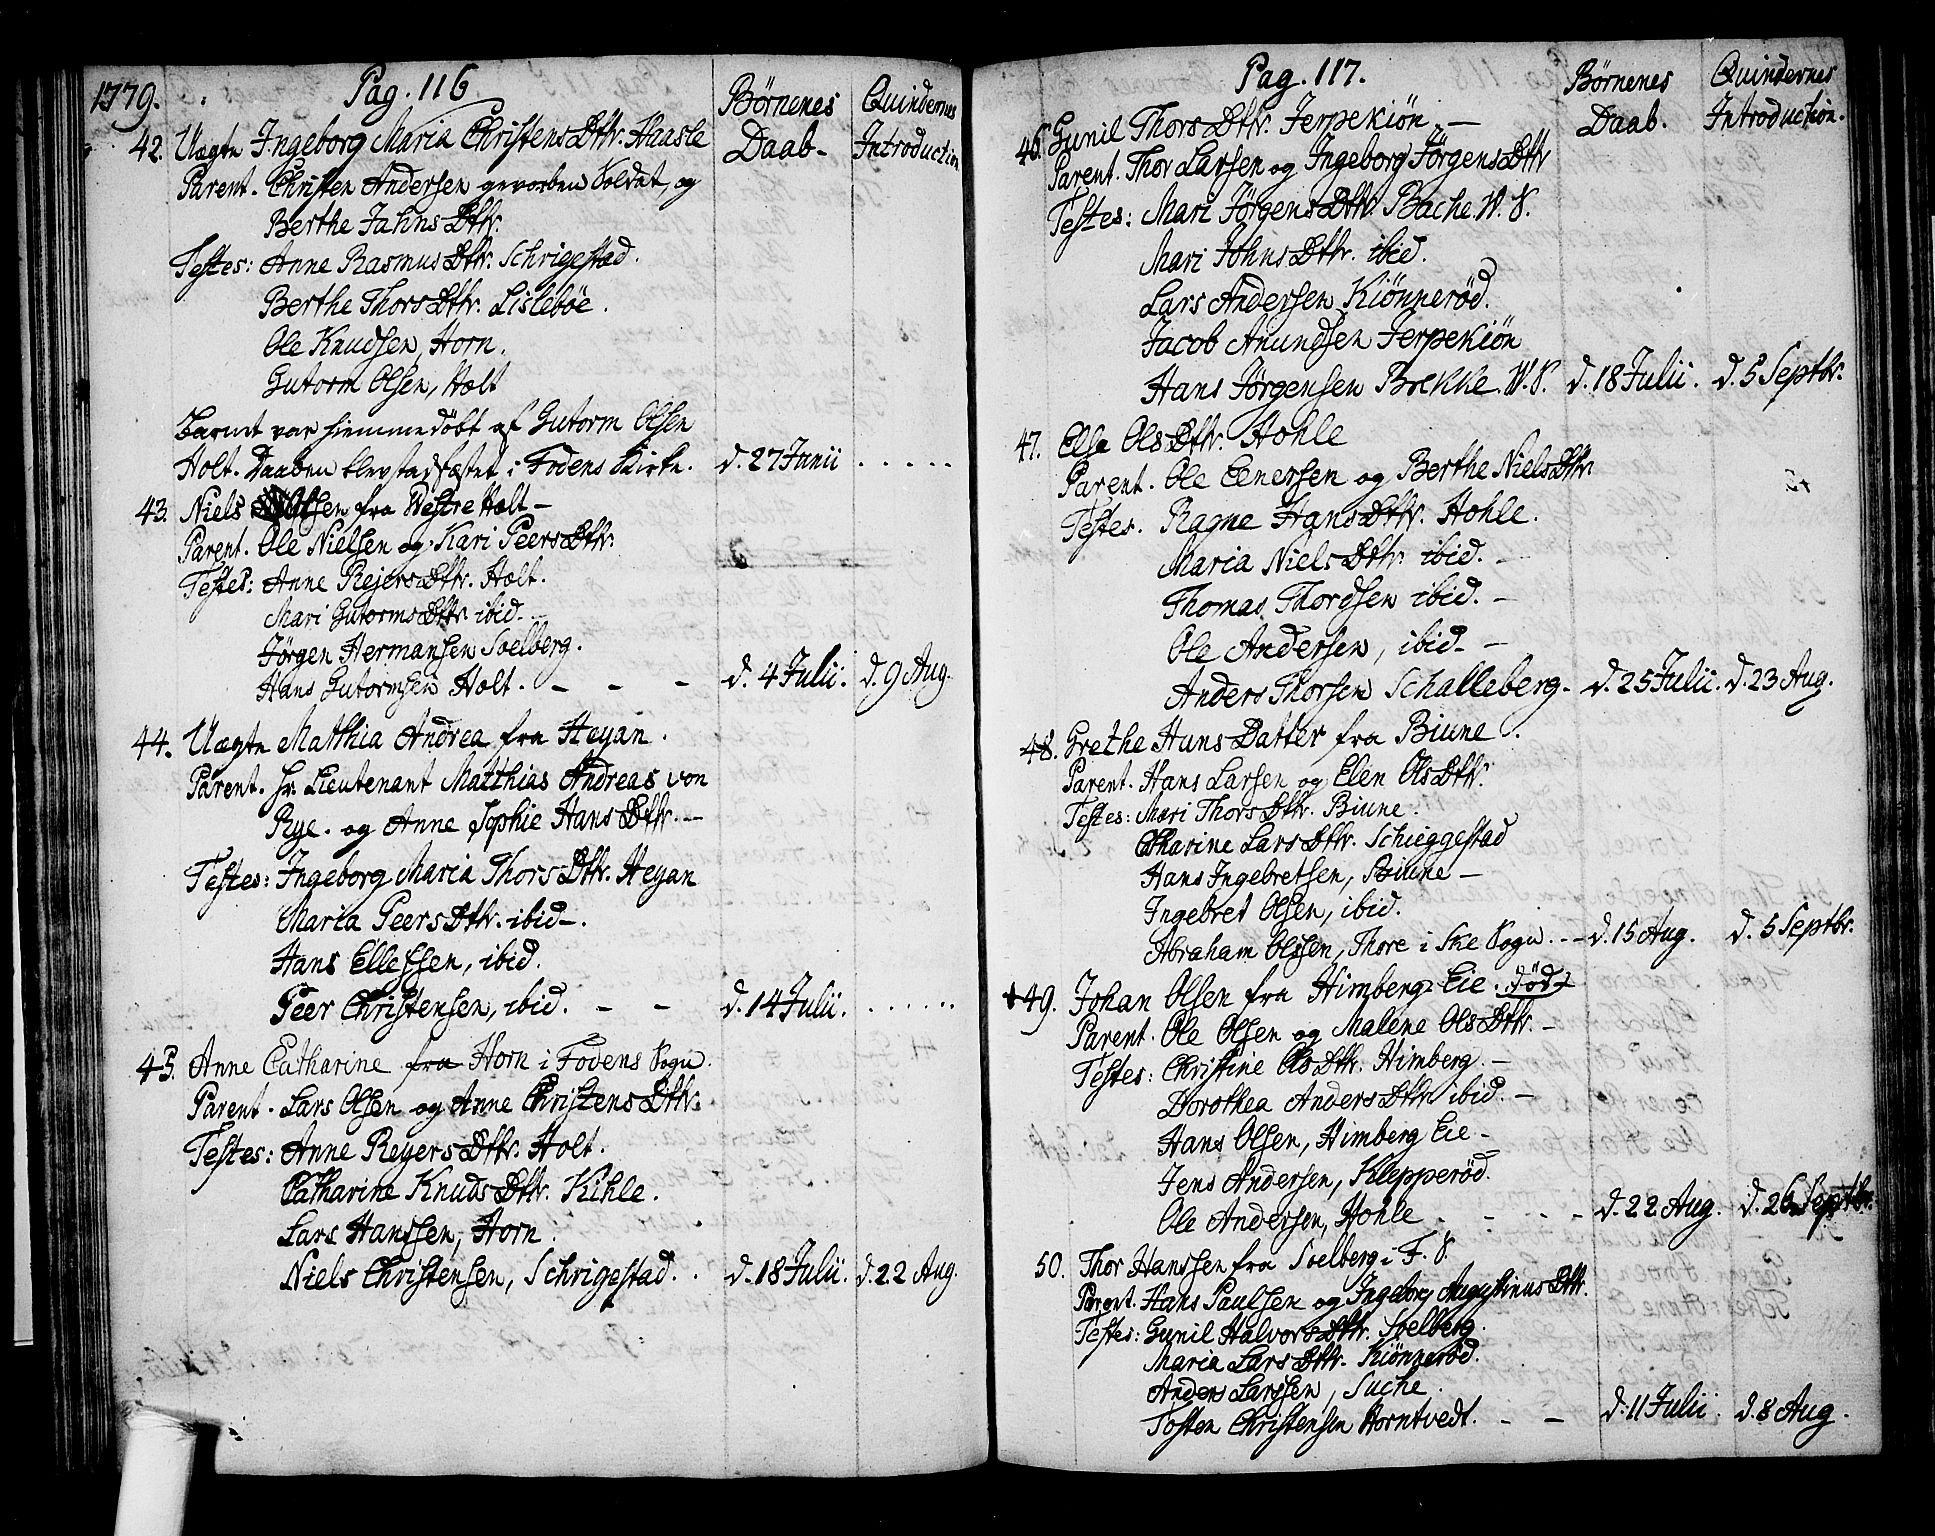 1779.
Pag. 116
Børnenes Daab-
Quindernes Introduction
42. Uægte Ingeborg Maria ChristensDttr. Haasle
Parent. Christen Andersen gevorben Soldat, og
Berthe JahnsDttr.
Testes: Anne RasmusDttr. Schrigestad.
Berthe ThorsDttr. Lislebøe.
Ole Knudsen, Horn.
Gutorm Olsen, Holt
Barnet var hiemmedøbt af Gutorm Olsen
Holt. Daaben blev stadfæstet i Fodens Kirke. d. 27 Junii . . . . . .
43. Niels Olsen fra Westre Holt -
Parent. Ole Nielsen og Kari PeersDttr.
Testes: Anne RejersDttr. Holt.
Mari GutormsDttr ibid -
Jørgen Hermansen Soelberg.
Hans Gutormsen Holt. - - - d. 4 Julii. d. 9 Aug.
44. Uægte Matthia Andrea fra Heyan.
Parent. Hr. Lieutenant Matthias Andreas von
Rye. og Anne Sophie HansDttr. -
Testes: Ingeborg Maria ThorsDttr. Heyan
Maria PeersDttr. ibid -.
Hans Ellefsen, ibid.
Peer Christensen, ibid. - - d. 14 Julii. . . . . . .
45. Anne Catharine fra Horn i Fodens Sogn.
Parent. Lars Olsen og Anne ChristensDttr.
Testes: Anne ReyersDttr. Holt.
Catharine KnudsDttr. Kihle.
Lars Hanssen, Horn.
Niels Christensen, Schrigestad. . d. 18 Julii. d. 22 Aug.
Pag. 117.
Børnenes Daab.
Quindernes Introduction.
46. Gunil ThorsDttr. Jerpekiøn. -
Parent. Thor Larsen og Ingeborg JørgensDttr
Testes: Mari JørgensDttr. Bache. W. S.
Mari JohnsDttr. ibid.
Lars Andersen Kiønnerød.
Jacob Anundsen Jerpekiøn
Hans Jørgensen Brekke. W. S. d. 18 Julii. d. 5 Septbr.
47. Else OlsDttr. Hohle
Parent. Ole Eenersen og Berthe NielsDttr.
Testes. Ragne HansDttr. Hohle.
Maria NielsDttr. ibid. -
Thomas Thordsen ibid. -
Ole Andersen, ibid. -
Anders Thorsen Schalleberg. - d. 25 Julii. d. 23 Aug.
48. Grethe Hans Datter fra Biune.
Parent. Hans Larsen og Elen OlsDttr.
Testes: Mari ThorsDttr. Biune.
Catharine LarsDttr. Schieggestad
Hans Ingebretsen, Biune -
Ingebret Olsen, ibid.
Abraham Olssen, Thore i Ske Sogn. - - d. 15 Aug. d. 5 Septbr.
+ 49. Johan Olsen fra Himberg Eie. død
Parent. Ole Olsen og Malene OlsDttr. -
Testes: Christine OlsDttr. Himberg. -
Dorothea AndersDttr ibid. -
Hans Olsen, Himberg Eie -
Jens Andersen, Klepperød.
Ole Andersen, Hohle - - - - d. 22 Aug. d. 26 Septbr.
50. Thor Hanssen fra Soelberg i F. S.
Parent. Hans Paulsen og Ingeborg AugustinusDttr.
Testes: Gunil HalvorsDttr. Soelberg.
Maria LarsDttr. Kiønnerød.
Anders Larssen, Suche.
Tosten Christensen Horntvedt. - - d. 11 Julii. d. 8 Aug.